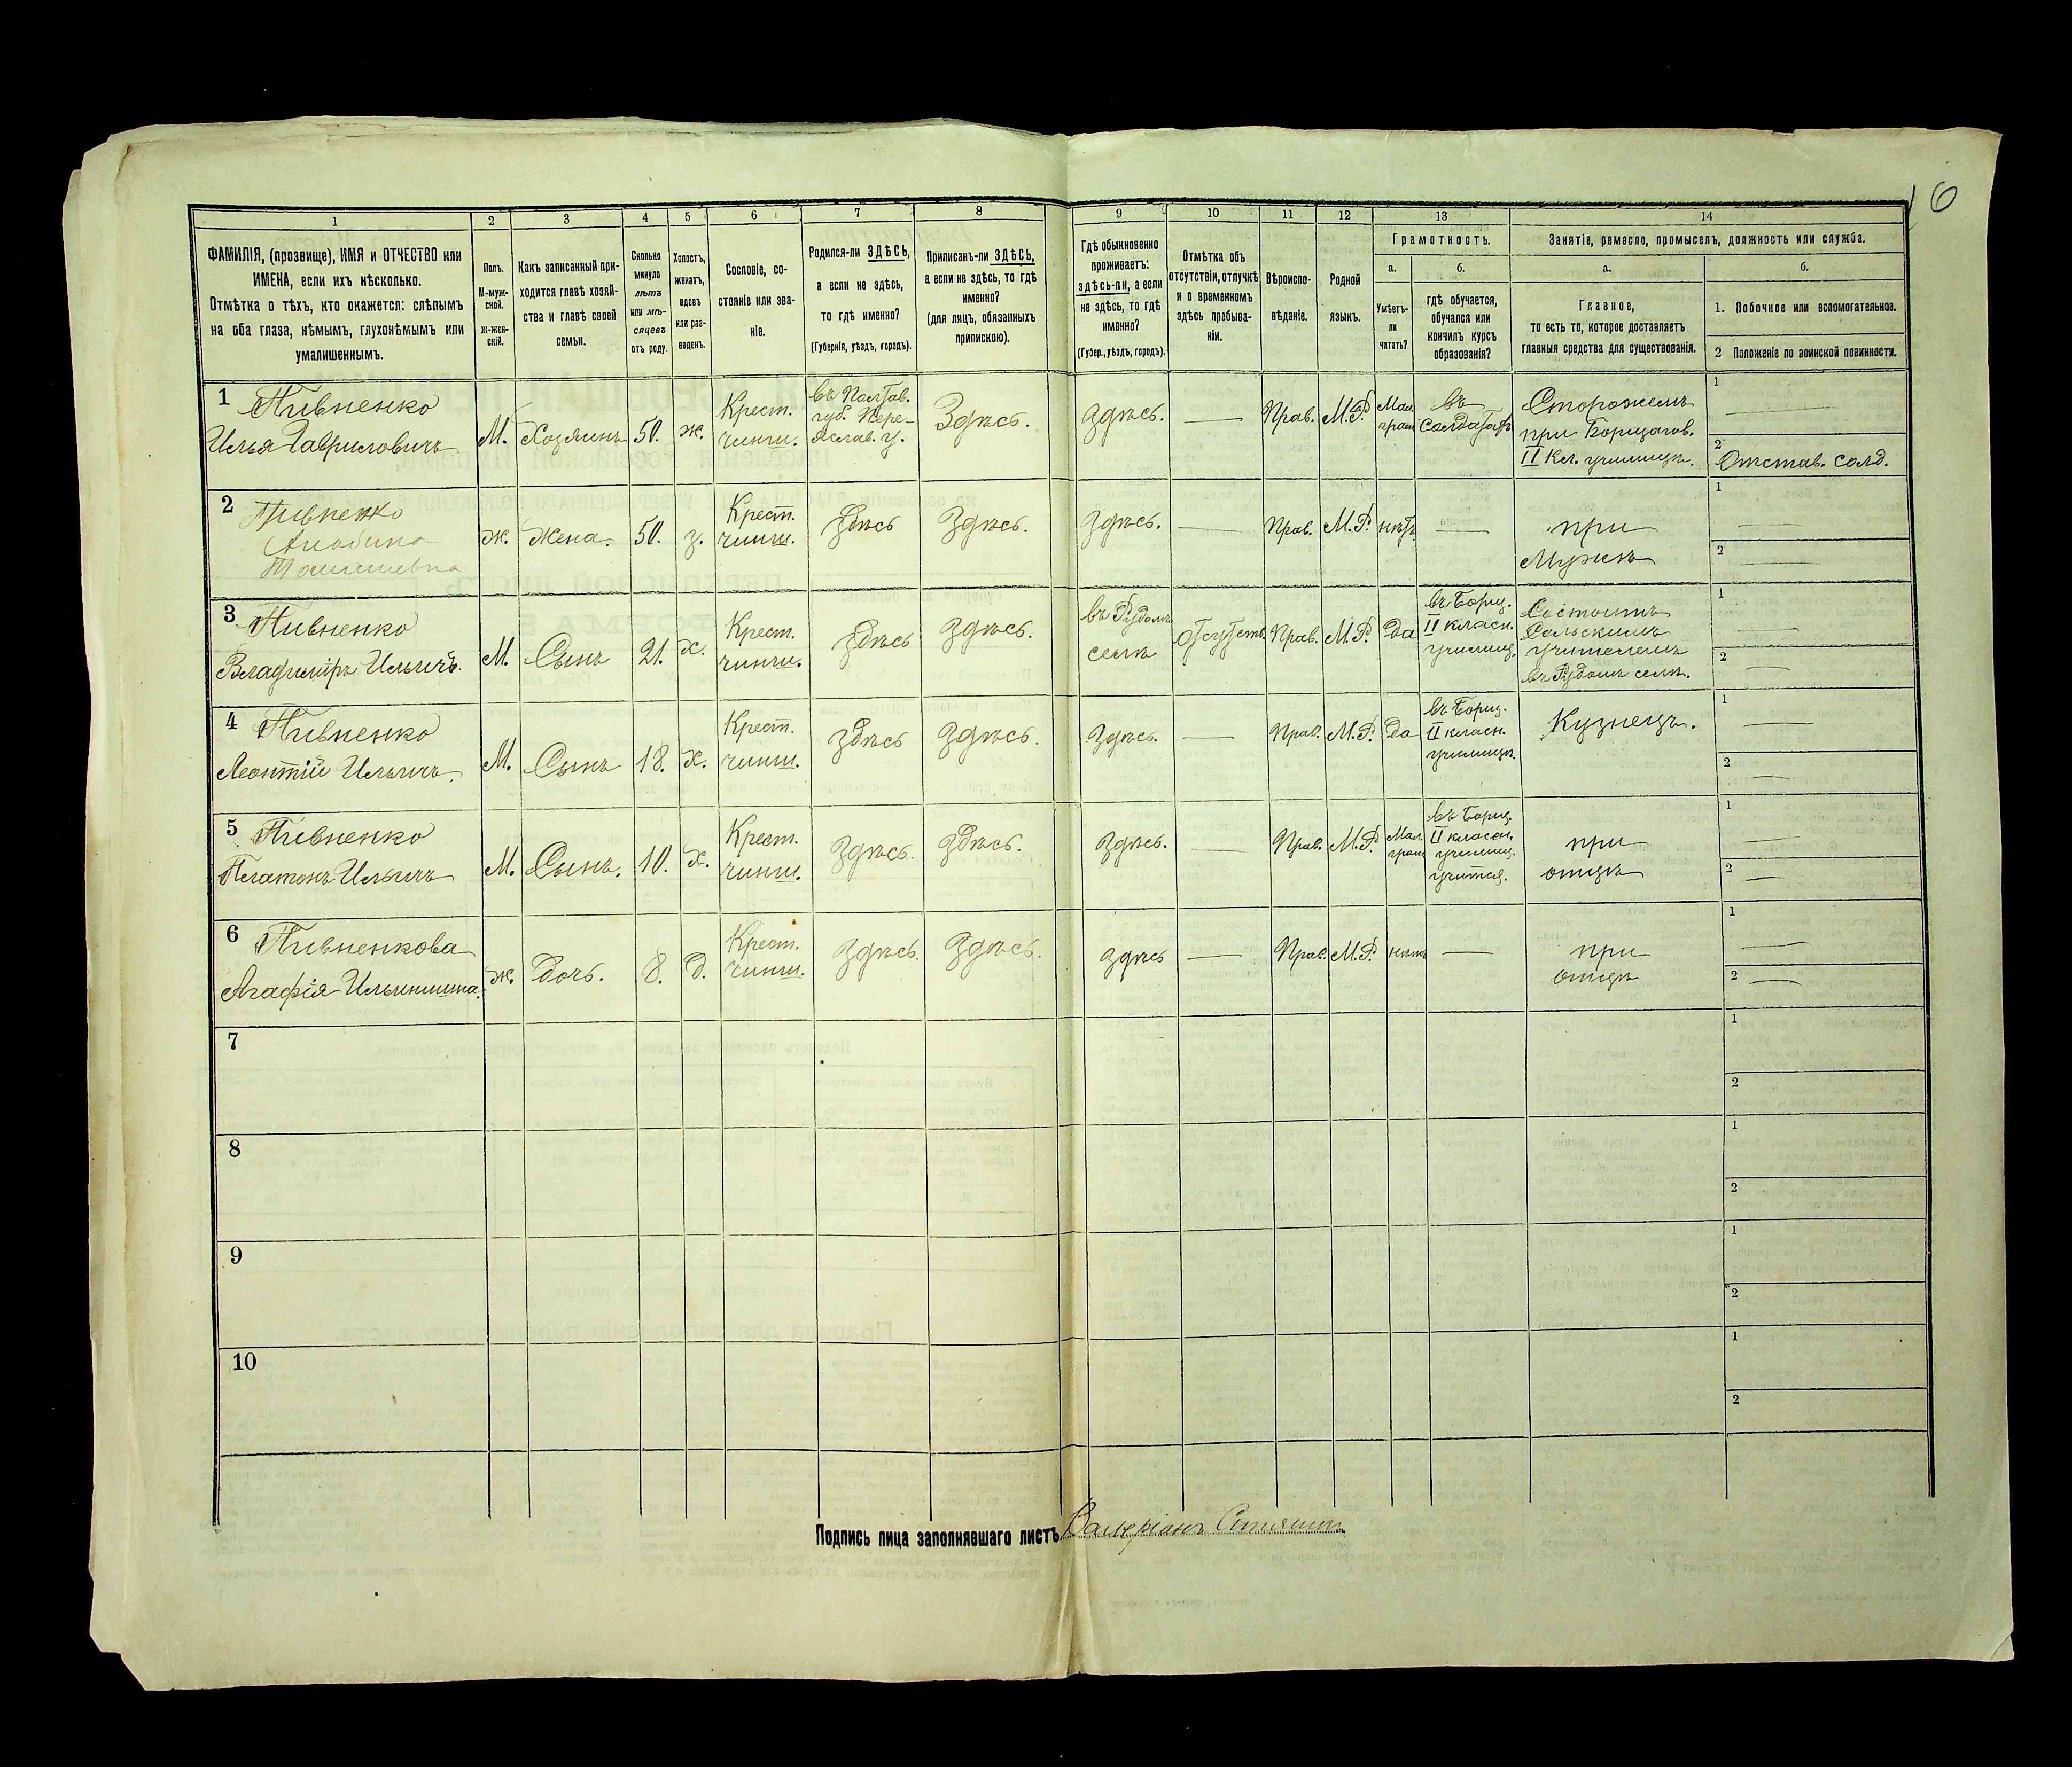 16
1 2 3 4 5 6 7 8 9 10 11 12 13 14
ФАМИЛІЯ, (прозвище), ИМЯ и ОТЧЕСТВО или
ИМЕНА, если ихъ нѣсколько.
Отмѣтка о тѣхъ, кто окажется: слѣпымъ
на оба глаза, нѣмымъ, глухонѣмымъ или
умалишеннымъ.
Полъ.
М-муж-
ской.
ж-жен-
скій.
Какъ записанный при-
ходится главѣ хозяй-
ства и главѣ своей
семьи.
Сколько
минуло
лѣтъ
или мѣ-
сяцевъ
отъ роду.
Холостъ,
женатъ,
вдовъ
или раз-
веденъ.
Сословіе, со-
стояніе или зва-
ніе.
Родился-ли ЗДѢСЬ,
а если не здѣсь,
то гдѣ именно?
(Губернія, уѣздъ, городъ).
Приписанъ-ли ЗДѢСЬ,
а если не здѣсь, то гдѣ
именно?
(для лицъ, обязанныхъ
припискою).
Гдѣ обыкновенно
проживаетъ:
здѣсь-ли, а если
не здѣсь, то гдѣ
именно?
(Губер., уѣздъ, городъ).
Отмѣтка объ
отсутствіи, отлучкѣ
и о временномъ
здѣсь пребыва-
ніи.
Вѣроиспо-
вѣданіе.
Родной
языкъ.
Грамотность.
а.
Умѣетъ-
ли
читать?
б.
гдѣ обучается,
обучался или
кончилъ курсъ
образованія?
Занятіе, ремесло, промыселъ, должность или служба.
а.
Главное,
то есть то, которое доставляетъ
главныя средства для существованія.
б.
1. Побочное или вспомогательное.
2 Положеніе по воинской повинности.
1 Пивненко
Илья Гавриловичъ
М.
Хозяинъ
50.
ж.
Крест.
чинш.
въ Полтав.
губ. Пере-
яслав. у.
Здѣсь.
здѣсь.
—
Прав.
М.Р.
Мал.
грам.
въ
солдатахъ
Сторожемъ
при Борщагов.
II кл. училищѣ.
1 —
2
Отстав. солд.
2 Пивненко
ж.
Жена.
50.
з.
Крест.
чинш.
здѣсь
здѣсь.
здѣсь.
—
Прав.
М.Р.
нѣтъ
—
при
Мужѣ
1 —
2 —
3 Пивненко
Владиміръ Ильичъ.
М.
Сынъ
21.
х.
Крест.
чинш.
здѣсь
здѣсь.
въ Рудомъ
селѣ
отсутств.
Прав.
М.Р.
Да
въ Борщ.
II класн.
училищ.
Состоитъ
Сельскимъ
учителемъ
въ Рудомъ селѣ.
1 —
2 —
4 Пивненко
Леонтій Ильичъ.
М.
Сынъ
18.
х.
Крест.
чинш.
здѣсь
здѣсь.
здѣсь.
—
Прав.
М.Р.
Да
въ Борщ.
II класн.
училищѣ.
Кузнецъ.
1 —
2 —
5 Пивненко
Платонъ Ильичъ
М.
Сынъ.
10.
х.
Крест.
чинш.
здѣсь.
здѣсь.
здѣсь.
—
Прав.
М.Р.
Мал.
грам.
въ Борщ.
II класн.
училищ.
учится.
при
отцѣ
1 —
2 —
6 Пивненкова
Агафія Ильинишна.
ж.
Дочь.
8.
д.
Крест.
чинш.
здѣсь.
здѣсь.
здѣсь
—
Прав.
М.Р.
нѣтъ
—
при
отцѣ
1 —
2 —
7
1
2
8
1
2
9
1
2
10
1
2
Подпись лица заполнявшаго листъ Валеріанъ